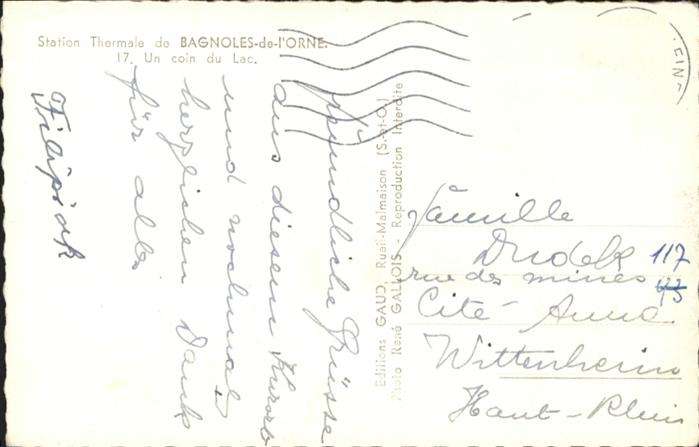 Station Thermale de BAGNOLES-de-l'ORNE.
17. Un coin du Lac.
freundliche Grüsse
aus diesem Kurort
und nochmals
herzlichen Dank
für alles
Filipiak
Editions GAUD, Rueil-Malmaison (S.-et-O.)
Photo René GALLOIS - Reproduction Interdite
Famille
Dudek 117
rue des mines
Cité Anna
Wittenheim
Haut-Rhin